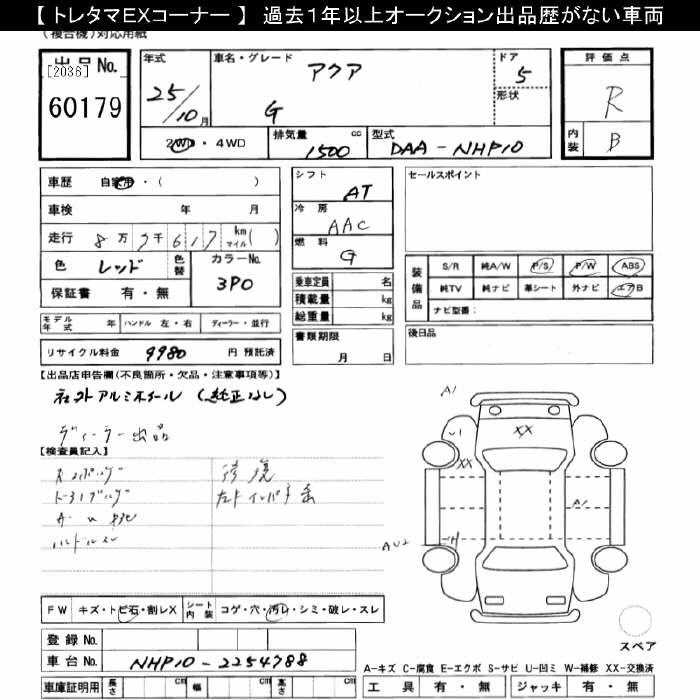 【 トレタマEXコーナー 】 過去1年以上オークション出品歴がない車両
(複合機)対応用紙
出品No.
[2036]
60179
年式
25/10月
車名・グレード
アクア
G
ドア
5
形状
評価点
R
内装
B
2WD・4WD
排気量 1500 cc
型式 DAA-NHP10
車歴 自家用・( )
車検 年 月
走行 8万7千617 km マイル( )
色 レッド 色替
カラーNo. 3P0
保証書 有・無
シフト AT
冷房 AAC
燃料 G
乗車定員 名
積載量 kg
総重量 kg
書類期限
月 日
セールスポイント
装備品
S/R 純A/W P/S P/W ABS
純TV 純ナビ 革シート 外ナビ エアB
ナビ型番:
後日品
モデル年式 年 ハンドル 左・右 ディーラー・並行
リサイクル料金 9980 円 預託済
【出品店申告欄(不良箇所・欠品・注意事項等)】
社外アルミホイール (純正なし)
ディーラー出品
【検査員記入】
修復
ハンドルスレ
A1
U1
XX
XX
A1
AU2
FW キズ・トビ石・割レX シート内装 コゲ・穴・汚レ・シミ・破レ・スレ
登録No.
車台No. NHP10-2254788
車庫証明用 長さ cm 幅 cm 高さ cm
スペア
A-キズ C-腐食 E-エクボ S-サビ U-凹ミ W-補修 XX-交換済
工具 有・無 ジャッキ 有・無